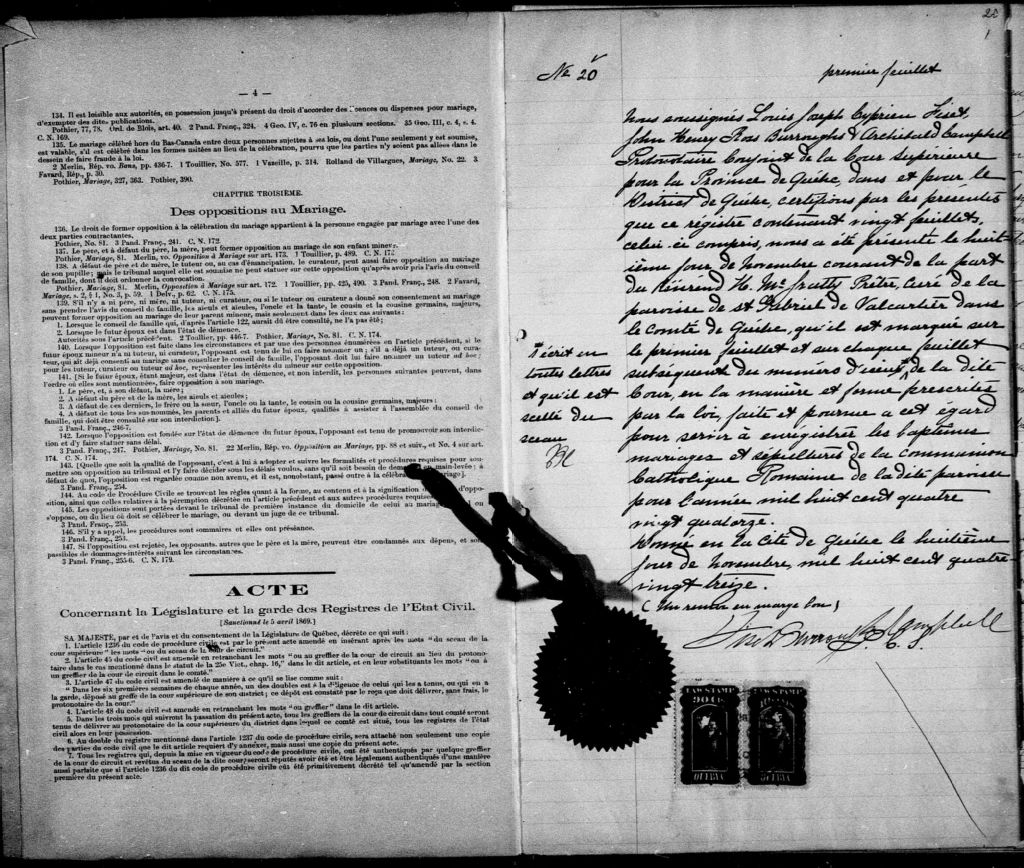 — 4 —
134. Il est loisible aux autorités, en possession jusqu'à présent du droit d'accorder des licences ou dispenses pour mariage,
d'exempter des dites publications.
Pothier, 77, 78. Ord. de Blois, art. 40. 2 Pand. Franç., 324. 4 Geo. IV, c. 76 en plusieurs sections. 35 Geo. III, c. 4, s. 4.
C. N. 169.
135. Le mariage célébré hors du Bas-Canada entre deux personnes sujettes à ses lois, ou dont l'une seulement y est soumise,
est valable, s'il est célébré dans les formes usitées au lieu de la célébration, pourvu que les parties n'y soient pas allées dans le
dessein de faire fraude à la loi.
2 Merlin, Rép. vo. Bans, pp. 436-7. 1 Touillier, No. 577. 1 Vazeille, p. 314. Rolland de Villargues, Mariage, No. 22. 3
Favard, Rép., p. 30.
Pothier, Mariage, 327, 363. Pothier, 390.
CHAPITRE TROISIÈME.
Des oppositions au Mariage.
136. Le droit de former opposition à la célébration du mariage appartient à la personne engagée par mariage avec l'une des
deux parties contractantes.
Pothier, No. 81. 3 Pand. Franç., 241. C. N. 172.
137. Le père, et à défaut du père, la mère, peut former opposition au mariage de son enfant mineur.
Pothier, Mariage, 81. Merlin, vo. Opposition à Mariage sur art. 173. 1 Touillier, p. 489. C. N. 173.
138. A défaut de père et de mère, le tuteur et, au cas d'émancipation, le curateur, peut aussi faire opposition au mariage
de son pupille; mais le tribunal auquel elle est soumise ne peut statuer sur cette opposition qu'après avoir pris l'avis du conseil
de famille, dont il doit ordonner la convocation.
Pothier, Mariage, 81. Merlin, Opposition à Mariage sur art. 172. 1 Touillier, pp. 425, 490. 3 Pand. Franç., 248. 2 Favard,
Mariage, s. 2, § 1, No. 3, p. 59. 1 Delv., p. 62. C. N. 175.
139. S'il n'y a ni père, ni mère, ni tuteur, ni curateur, ou si le tuteur ou curateur a donné son consentement au mariage
sans prendre l'avis du conseil de famille, les aïeuls et aïeules, l'oncle et la tante, le cousin et la cousine germains, majeurs,
peuvent former opposition au mariage de leur parent mineur, mais seulement dans les deux cas suivants:
1. Lorsque le conseil de famille qui, d'après l'article 122, aurait dû être consulté, ne l'a pas été;
2. Lorsque le futur époux est dans l'état de démence.
Autorités sous l'article précédent. 2 Touillier, pp. 446-7. Pothier, Mariage, No. 81. C. N. 174.
140. Lorsque l'opposition est faite dans les circonstances et par une des personnes énumérées en l'article précédent, si le
futur époux mineur n'a ni tuteur, ni curateur, l'opposant est tenu de lui en faire nommer un; s'il a déjà un tuteur, ou cura-
teur, qui ait déjà consenti au mariage sans consulter le conseil de famille, l'opposant doit lui faire nommer un tuteur ad hoc;
pour les tuteur, curateur ou tuteur ad hoc, représenter les intérêts du mineur sur cette opposition.
141. [Si le futur époux, étant majeur, est dans l'état de démence, et non interdit, les personnes suivantes peuvent, dans
l'ordre où elles sont mentionnées, faire opposition à son mariage.
1. Le père, et, à son défaut, la mère;
2. A défaut du père et de la mère, les aïeuls et aïeules;
3. A défaut de ces derniers, le frère ou la sœur, l'oncle ou la tante, le cousin ou la cousine germains, majeurs;
4. A défaut de tous les sus-nommés, les parents et alliés du futur époux, qualifiés à assister à l'assemblée du conseil de
famille, qui doit être consulté sur son interdiction].
3 Pand. Franç., 246-7.
142. Lorsque l'opposition est fondée sur l'état de démence du futur époux, l'opposant est tenu de promouvoir son interdic-
tion et d'y faire statuer sans délai.
3 Pand. Franç., 247. Pothier, Mariage, No. 81. 22 Merlin, Rép. vo. Opposition au Mariage, pp. 88 et suiv., et No. 4 sur art.
174. C. N. 174.
143. [Quelle que soit la qualité de l'opposant, c'est à lui à adopter et suivre les formalités et procédures requises pour sou-
mettre son opposition au tribunal et l'y faire décider sous les délais voulus, sans qu'il soit besoin de demande en main-levée; à
défaut de quoi, l'opposition est regardée comme non avenu, et il est, nonobstant, passé outre à la célébration du mariage].
3 Pand. Franç., 254.
144. Au code de Procédure Civile se trouvent les règles quant à la forme, au contenu et à la signification d'oppo-
sition, ainsi que celles relatives à la péremption décrétée en l'article précédent et aux autres procédures requises
145. Les oppositions sont portées devant le tribunal de première instance du domicile de celui au mariage duquel on
s'oppose, ou du lieu où doit se célébrer le mariage, ou devant un juge de ce tribunal.
3 Pand. Franç., 253.
146. S'il y a appel, les procédures sont sommaires et elles ont préséance.
3 Pand. Franç., 253.
147. Si l'opposition est rejetée, les opposants, autres que le père et la mère, peuvent être condamnés aux dépens, et sont
passibles de dommages-intérêts suivant les circonstances.
3 Pand. Franç., 255-6. C. N. 179.
ACTE
Concernant la Législature et la garde des Registres de l'Etat Civil.
[Sanctionné le 5 avril 1869.]
SA MAJESTE, par et de l'avis et du consentement de la Législature de Québec, décrète ce qui suit:
1. L'article 1236 du code de procédure civile est par le présent acte amendé en insérant après les mots "du sceau de la
cour supérieure" les mots "ou du sceau de la cour de circuit."
2. L'article 45 du code civil est amendé en retranchant les mots "ou de la cour de circuit au lieu du protono-
taire dans le cas mentionné dans le statut de la 25e Vict., chap. 16," dans le dit article, et en leur substituant les mots "ou à
un greffier de la cour de circuit dans le comté."
3. L'article 47 du code civil est amendé de manière à ce qu'il se lise comme suit:
"Dans les six premières semaines de chaque année, un des doubles est à la diligence de celui qui les a tenus, ou qui en a
la garde, déposé au greffe de la cour supérieure de son district; ce dépôt est constaté par le reçu que doit délivrer, sans frais, le
protonotaire de la cour."
4. L'article 48 du code civil est amendé en retranchant les mots "ou greffier" dans le dit article.
5. Dans les trois mois qui suivront la passation du présent acte, tous les greffiers de la cour de circuit dans tout comté seront
tenus de délivrer au protonotaire de la cour supérieure du district dans lequel ce comté est situé, tous les registres de l'état
civil alors en leur possession.
6. Au double du registre mentionné dans l'article 1237 du code de procédure civile, sera attaché non seulement une copie
des parties du code civil que le dit article requiert d'y annexer, mais aussi une copie du présent acte.
7. Tous les registres qui, depuis la mise en vigueur du code de procédure civile, ont été authentiqués par quelque greffier
de la cour de circuit et revêtus du sceau de la dite cour, seront réputés avoir été et être légalement authentiqués d'une manière
aussi parfaite que si l'article 1236 du dit code de procédure civile eût été primitivement décrété tel qu'amendé par la section
première du présent acte.
20
1
No 20
premier feuillet
Nous soussignés Louis Joseph Cyprien Fiset,
John Henry Ross Burroughs & Archibald Campbell
Protonotaire Conjoint de la Cour Superieure
pour la Province de Québec, dans et pour le
District de Québec, certifions par les présentes
que ce régistre contenant vingt feuillets,
celui-ci compris, nous a été présenté le huit-
ième jour de Novembre courant de la part
du Révérend H. McGratty Prêtre, curé de la
paroisse de St Gabriel de Valcartier dans
le Comté de Québec, qu'il est marqué sur
le premier feuillet et sur chaque feuillet
subséquent du numéro d'icelui, de la dite
Cour, en la manière et forme prescrites
par la loi, faite et pourvue a cet égard
pour servir à enrégistrer les baptêmes
mariages et sépultures de la communion
Catholique Romaine de la dite paroisse
pour l'année mil huit cent quatre
vingt quatorze.
Donné en la Cité de Québec le huitième
jour de Novembre, mil huit cent quatre-
vingt treize.
(Un renvoi en marge bon)
écrit en
toutes lettres
et qu'il est
scellé du
sceau
Fiset Burroughs & Campbell
P. C. S.
LAW STAMP
LAW STAMP
QUEBEC
QUEBEC